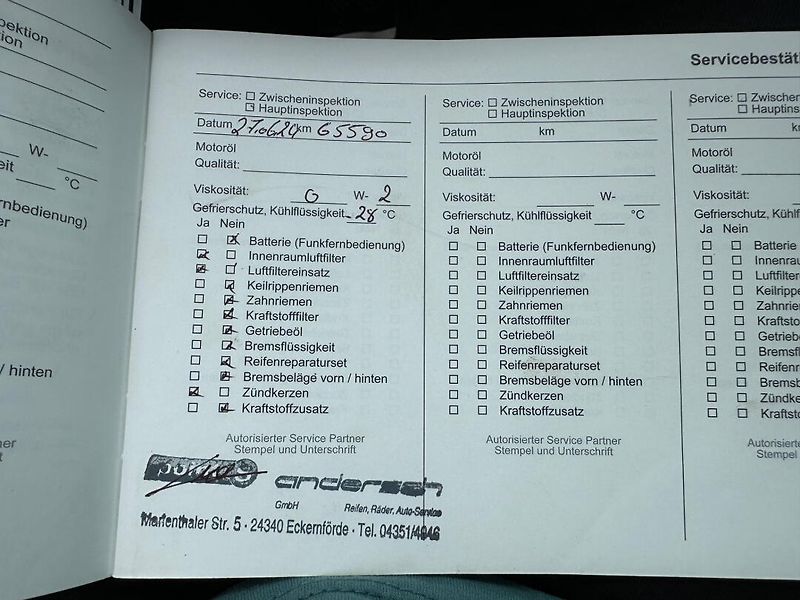 pektion
ion
W-
eit °C
rnbedienung)
er
/ hinten
ner
t
Servicebestät
Service: Zwischeninspektion
Hauptinspektion
Datum 27.06.24 km 65590
Motoröl
Qualität:
Viskosität: 0 W- 2
Gefrierschutz, Kühlflüssigkeit -28 °C
Ja Nein
Batterie (Funkfernbedienung)
Innenraumluftfilter
Luftfiltereinsatz
Keilrippenriemen
Zahnriemen
Kraftstofffilter
Getriebeöl
Bremsflüssigkeit
Reifenreparaturset
Bremsbeläge vorn / hinten
Zündkerzen
Kraftstoffzusatz
Autorisierter Service Partner
Stempel und Unterschrift
andersen
GmbH Reifen, Räder, Auto-Service
Marienthaler Str. 5 · 24340 Eckernförde · Tel. 04351/4946
Service: Zwischeninspektion
Hauptinspektion
Datum km
Motoröl
Qualität:
Viskosität: W-
Gefrierschutz, Kühlflüssigkeit °C
Ja Nein
Batterie (Funkfernbedienung)
Innenraumluftfilter
Luftfiltereinsatz
Keilrippenriemen
Zahnriemen
Kraftstofffilter
Getriebeöl
Bremsflüssigkeit
Reifenreparaturset
Bremsbeläge vorn / hinten
Zündkerzen
Kraftstoffzusatz
Autorisierter Service Partner
Stempel und Unterschrift
Service: Zwischenins
Hauptinspe
Datum k
Motoröl
Qualität:
Viskosität:
Gefrierschutz, Kühlflüs
Ja Nein
Batterie
Innenrau
Luftfilter
Keilrippe
Zahnrie
Kraftsto
Getriebe
Bremsfl
Reifenre
Bremsb
Zündke
Kraftsto
Autorisierte
Stempel